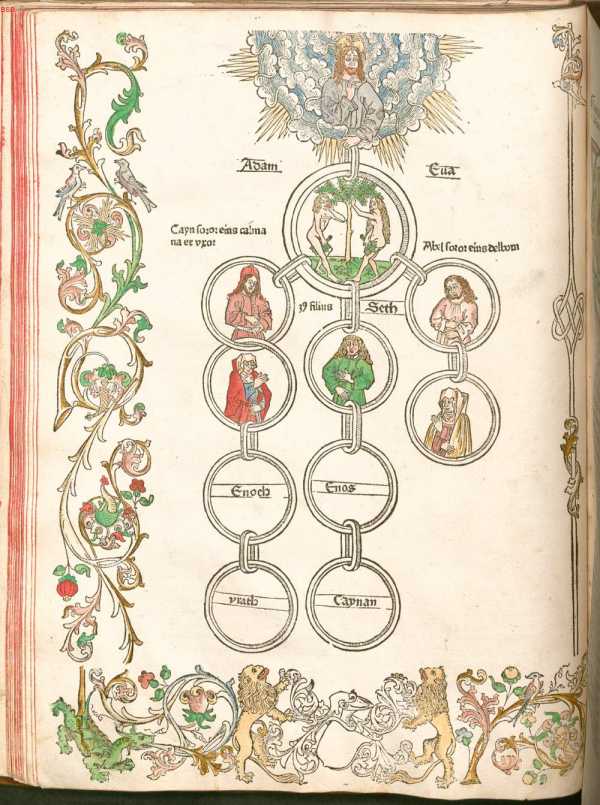 Adam
Eua
Cayn soror eius calma
na et vxor
Abel soror eius delbora
filius
Seth
Enoch
Enos
yrath
Caynan